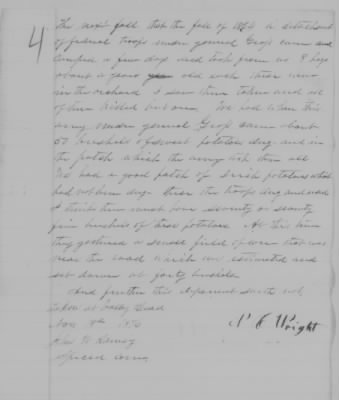 4
The next fall that the fall of 1864 a detachment
of federal troops under general Gross came and
camped a few days and took from us 8 hogs
about a year old each these were
in the orchard I saw them taken and all
of them killed but one. We had when this
army under general Gross came about
50 bushels of sweet potatoes dug and in
the patch which the army took them all
We had a good patch of Irish potatoes which
had not been dug these the troops dug and used
I think there must have seventy or seventy
five bushels of these potatoes At this time
they gathered a small field of corn that was
near the road which we estimated and
set down at forty bushels
And further this deponent saith not,
taken at Valley Head
Nov 8th 18
Special Com
N. C. Wright